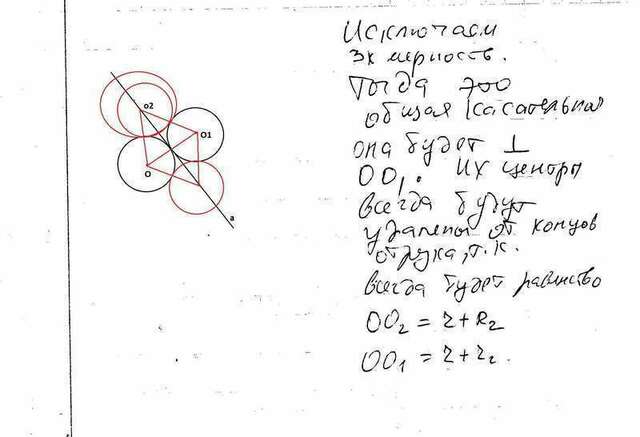 o2
O1
O
a
Исключаем
3х мерность.
Тогда это
общая касательная
она будет ⊥
OO₁. Их центры
всегда будут
удалены от концов
отрезка, т.к.
всегда будет равенство
OO₂ = r + R₂
OO₁ = r + r₂.